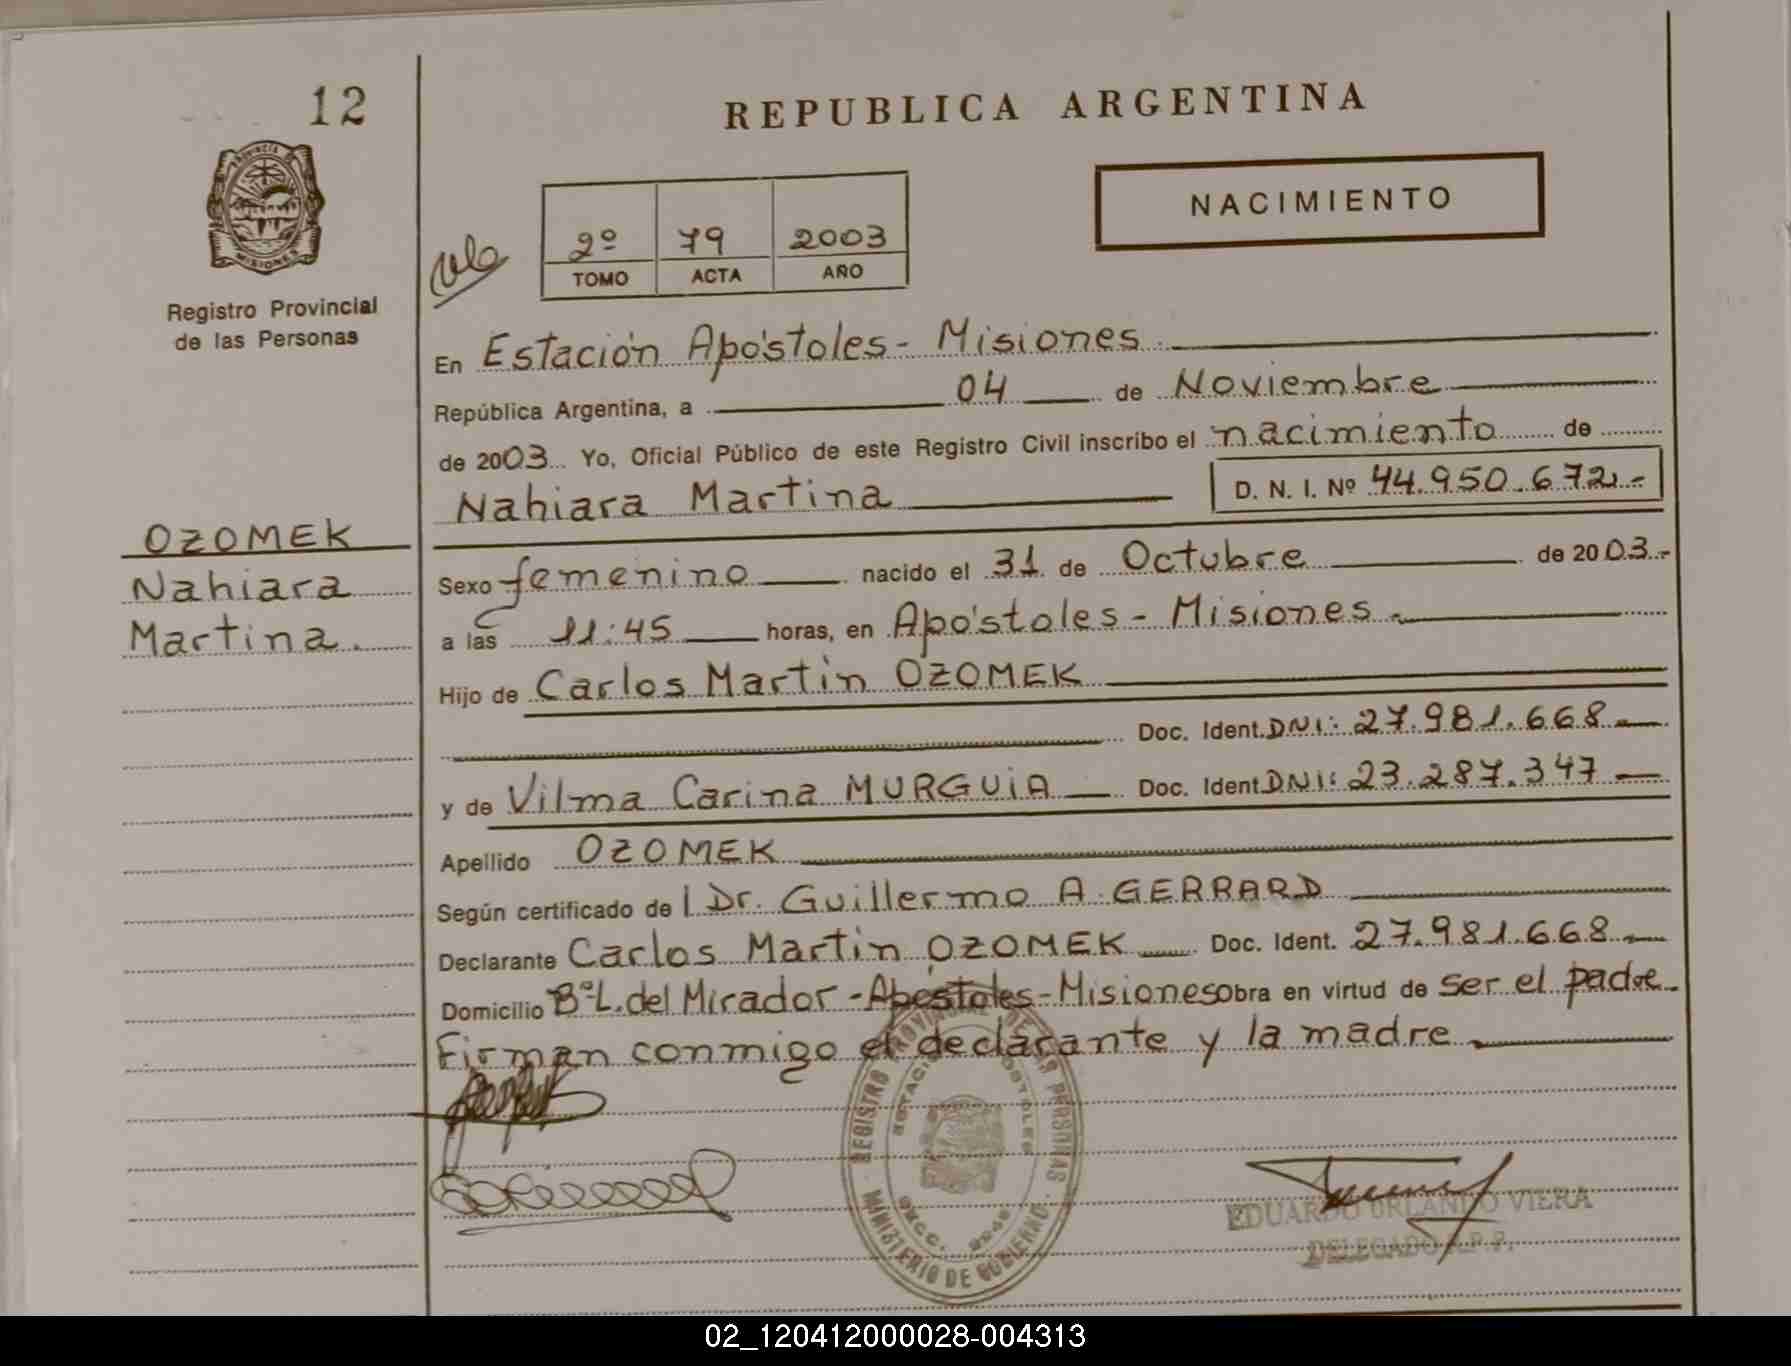 12
REPUBLICA ARGENTINA
NACIMIENTO
2º 79 2003
TOMO ACTA AÑO
PROVINCIA DE
MISIONES
Registro Provincial
de las Personas
En Estación Apóstoles - Misiones
República Argentina, a 04 de Noviembre
de 2003 Yo, Oficial Público de este Registro Civil inscribo el nacimiento de
Nahiara Martina D. N. I. Nº 44.950.672.-
OZOMEK
Nahiara
Martina.
Sexo femenino nacido el 31 de Octubre de 2003.-
a las 11:45 horas, en Apóstoles - Misiones.
Hijo de Carlos Martin OZOMEK
Doc. Ident. DNI: 27.981.668
y de Vilma Carina MURGUIA Doc. Ident DNI: 23.287.347
Apellido OZOMEK
Según certificado de l Dr. Guillermo A. GERRARD
Declarante Carlos Martin OZOMEK Doc. Ident. 27.981.668
Domicilio Bº L. del Mirador - Apostoles - Misiones obra en virtud de ser el padre.
Firman conmigo el declarante y la madre
REGISTRO PROVINCIAL DE LAS PERSONAS
ESTACION APOSTOLES
MINISTERIO DE GOBIERNO
EDUARDO ORLANDO VIERA
DELEGADO R.P.P.
02_120412000028-004313